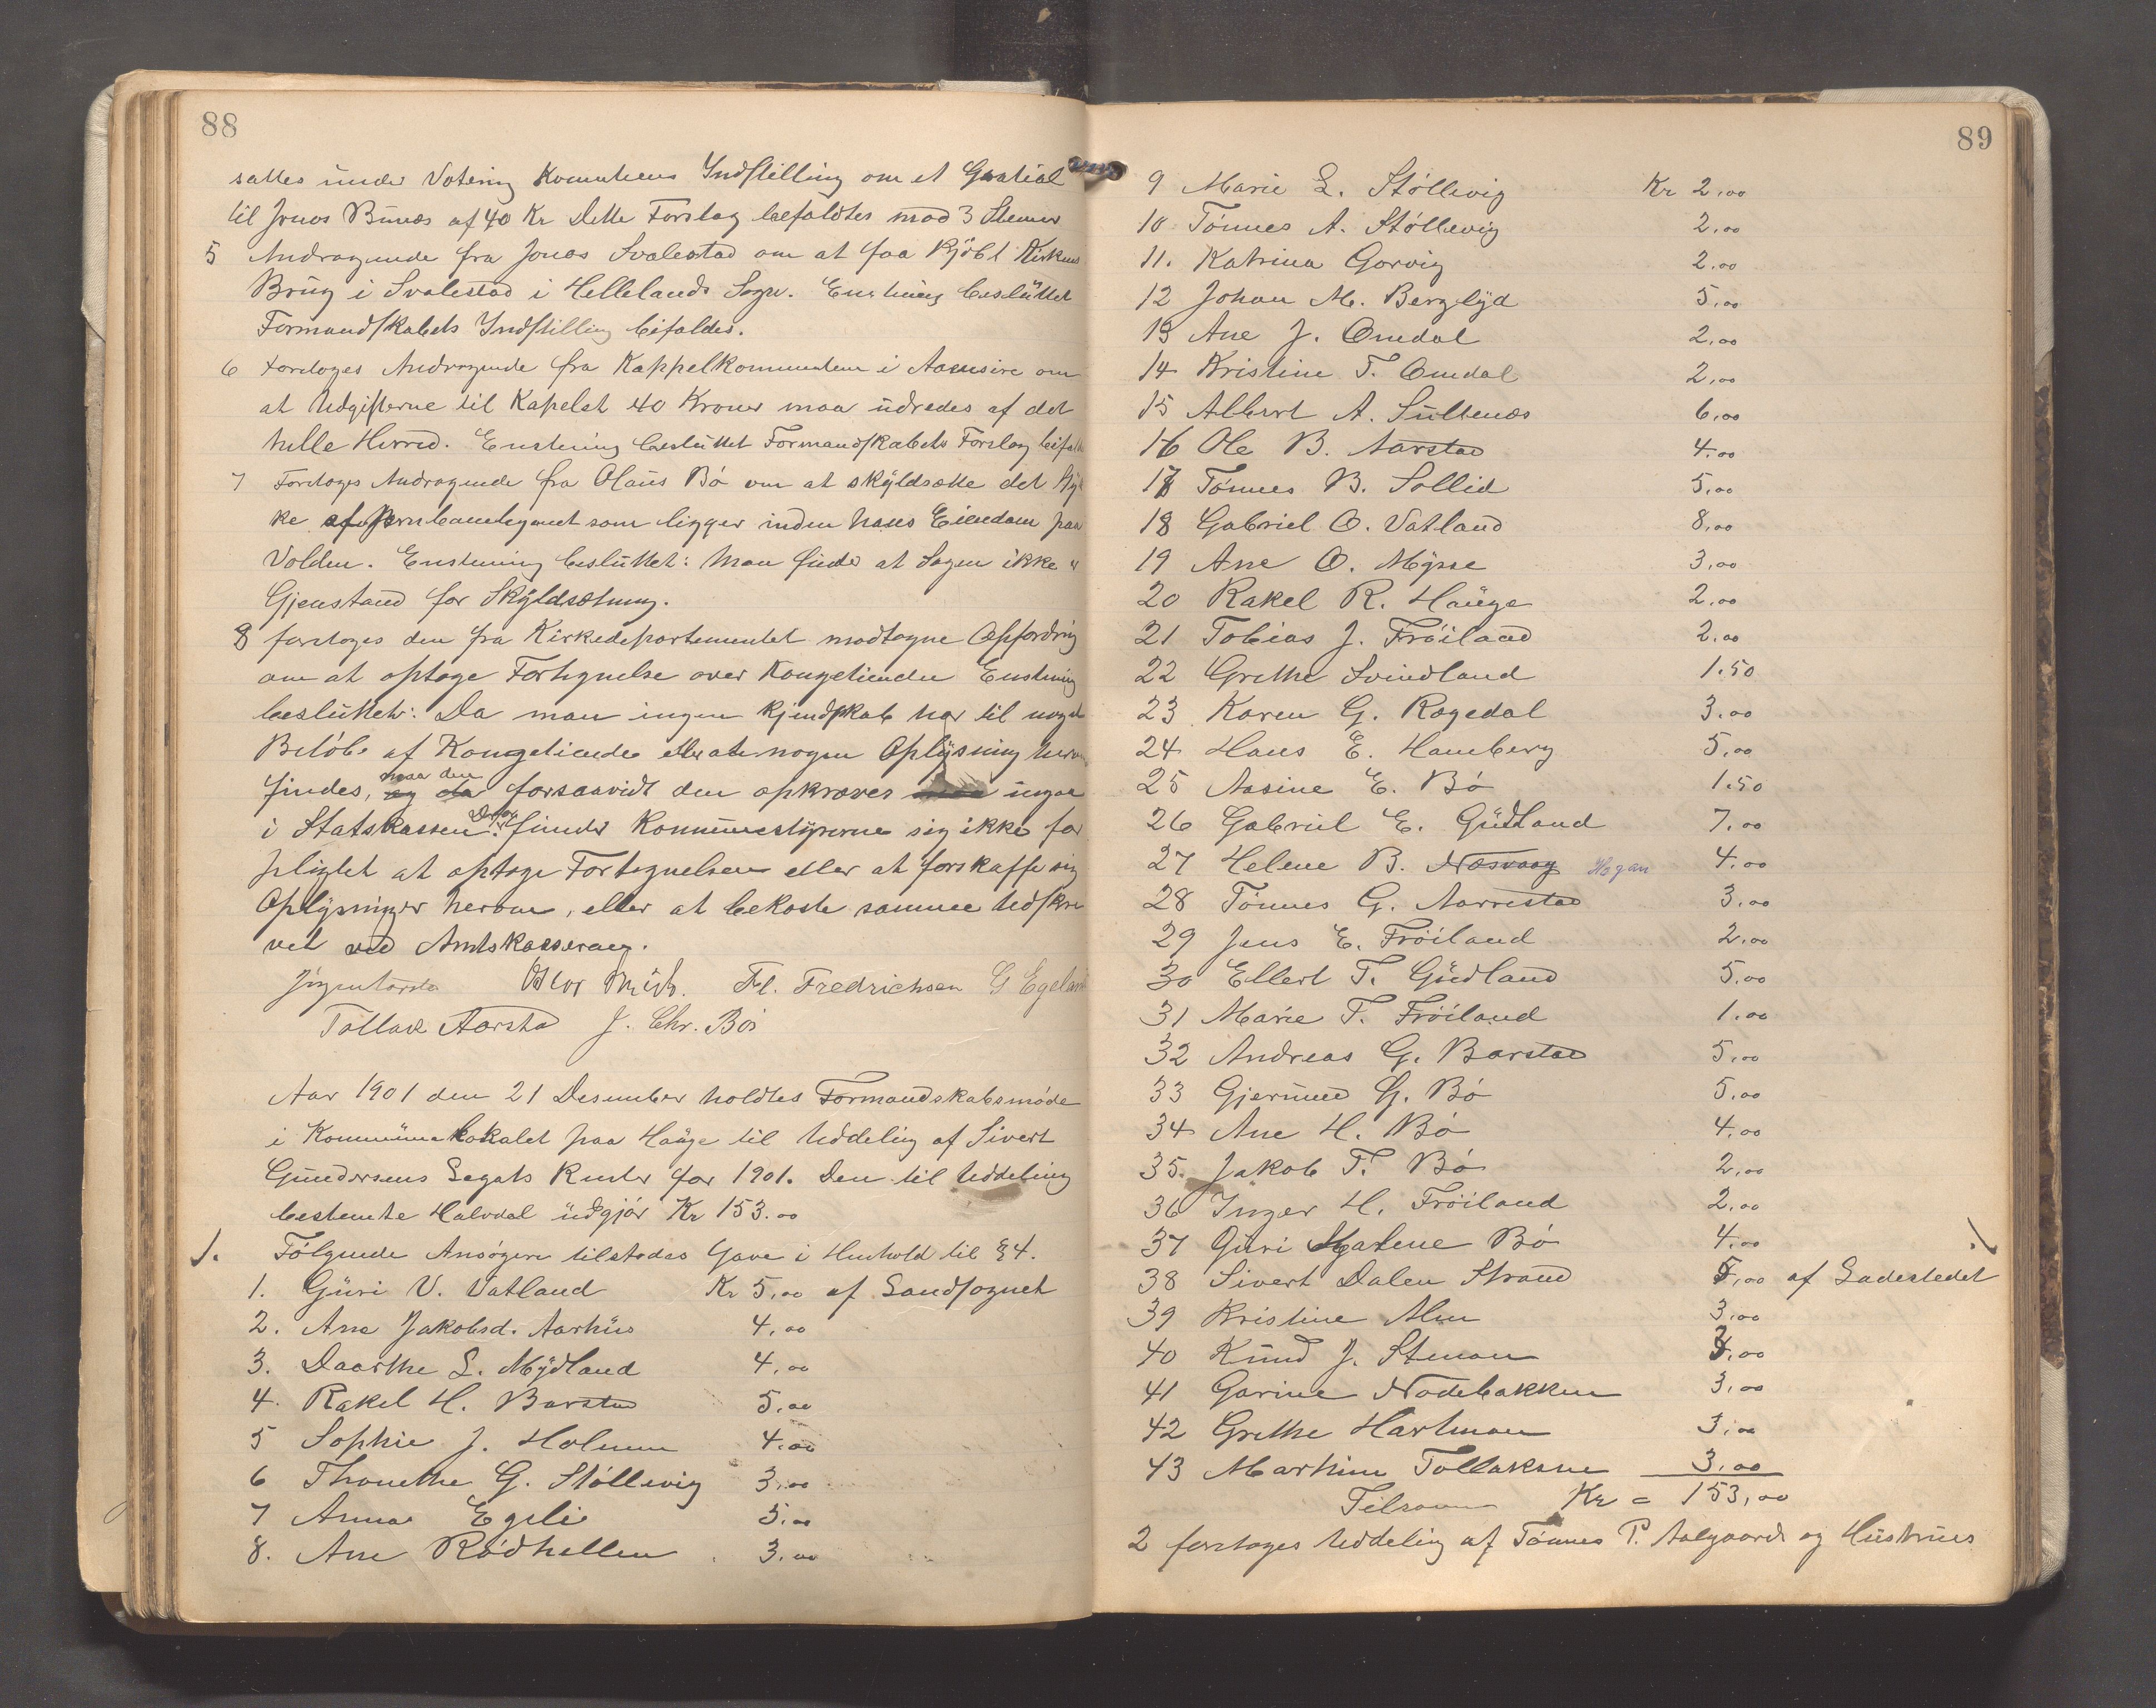 88
sattes under Votering Komiteens Indstilling om et Gratial
til Jonas Bunæs af 40 Kr Dette Forslag befaldtes mod 3 Stemer
5 Andragende fra Jonas Svalestad om at faa kjöbt Kirkens
Brug i Svalestad i Hellelands Sogn. Enstemig besluttet
Formandskabets Indstilling bifaldes.
6 Foretoges Andragende fra Kappelkommiteen i Aaensire om
at Udgifterne til Kapelet 40 Kroner maa udredes af det
hele Herred. Enstemig besluttet Formandskabets Forslag bifaldes
7 Foretoges Andragende fra Olaus Bö om at skyldsætte det Styk
ke af Jernbanelegemet som ligger inden hans Eiendom paa
Volden. Enstemig besluttet: Man finder at Sagen ikke er
Gjenstand for Skyldsætning.
8 foretoges den fra Kirkedepartementet modtagne Opfordring
om at optage Fortegnelse over Kongetienden Enstemig
besluttet: Da man ingen kjendskab har til noget
Belöb af Kongetiende eller at nogen Oplysning herom
findes, og da maa den forsaavidt den opkræves maa ingaa
i Statskassen. Derfor finder Kommunestyrerne sig ikke for
pligtet at optage Fortegnelsen eller at forskaffe sig
Oplysninger herom, eller at bekoste samme Udskre
vet ved Amtskasseraren.
Fl. Fredrichsen G Egeland
Tollak Aarstad J. Chr. Böe
Aar 1901 den 21 Desember holdtes Formandskabsmöde
i Kommunelokalet paa Hauge til Uddeling af Sivert
Gundersens Legats Renter for 1901. Den til Uddeling
bestemte Halvdel udgjör Kr 153.00
1. Fölgende Ansögere tilstodes Gave i Henhold til § 4.
1. Guri V. Vatland Kr 5,00 af Landsognet
2. Ane Jakobsd. Aarhus 4,00
3. Daarthe L. Mydland 4,00
4. Rakel H. Barstad 5,00
5 Sophie J. Holmen 4,00
6 Thonethe G. Stöllevig 3,00
7 Anna Egeli 5,00
8. Ane Rödhellen 3,00
89
9 Marie L. Stöllevig Kr 2,00
10 Tönnes A. Stöllevig 2,00
11. Katrina Gorvig 2,00
12 Johan M. Berglyd 5,00
13 Ane J. Omdal 2,00
14 Kristine T. Omdal 2,00
15 Albert A. Sultenæs 6,00
16 Ole B. Aarstad 4,00
17 Tönnes B. Sollid 5,00
18 Gabriel O. Vatland 8,00
19 Ane O. Mysse 3,00
20 Rakel R. Hauge 2,00
21 Tobias J. Fröiland 2,00
22 Grethe Svindland 1.50
23 Karen G. Ragedal 3,00
24 Hans E. Hamberg 5,00
25 Aasine E. Bö 1.50
26 Gabriel E. Gudland 7,00
27 Helene B. Næsvaag Hegan 4,00
28 Tönnes G. Aarrestad 3,00
29 Jens E. Fröiland 2,00
30 Ellert T. Gudland 5,00
31 Marie T. Fröiland 1,00
32 Andreas G. Barstad 5,00
33 Gjermund G. Bö 5,00
34 Ane H. Bö 4,00
35. Jakob T. Bö 2,00
36 Inger H. Fröiland 2,00
37 Guri Malene Bö 4,00
38 Sivert Dalen Strand 5,00 af Ladestedet
39 Kristine Alm 3,00
40 Knud J. Stenan 3,00
41 Garine Nodebakken 3,00
42 Grethe Hartman 3,00
43 Marthine Tollaksen 3,00
Tilsammen Kr = 153,00
2 foretoges Uddeling af Tönnes P. Aalgaards og Hustrues